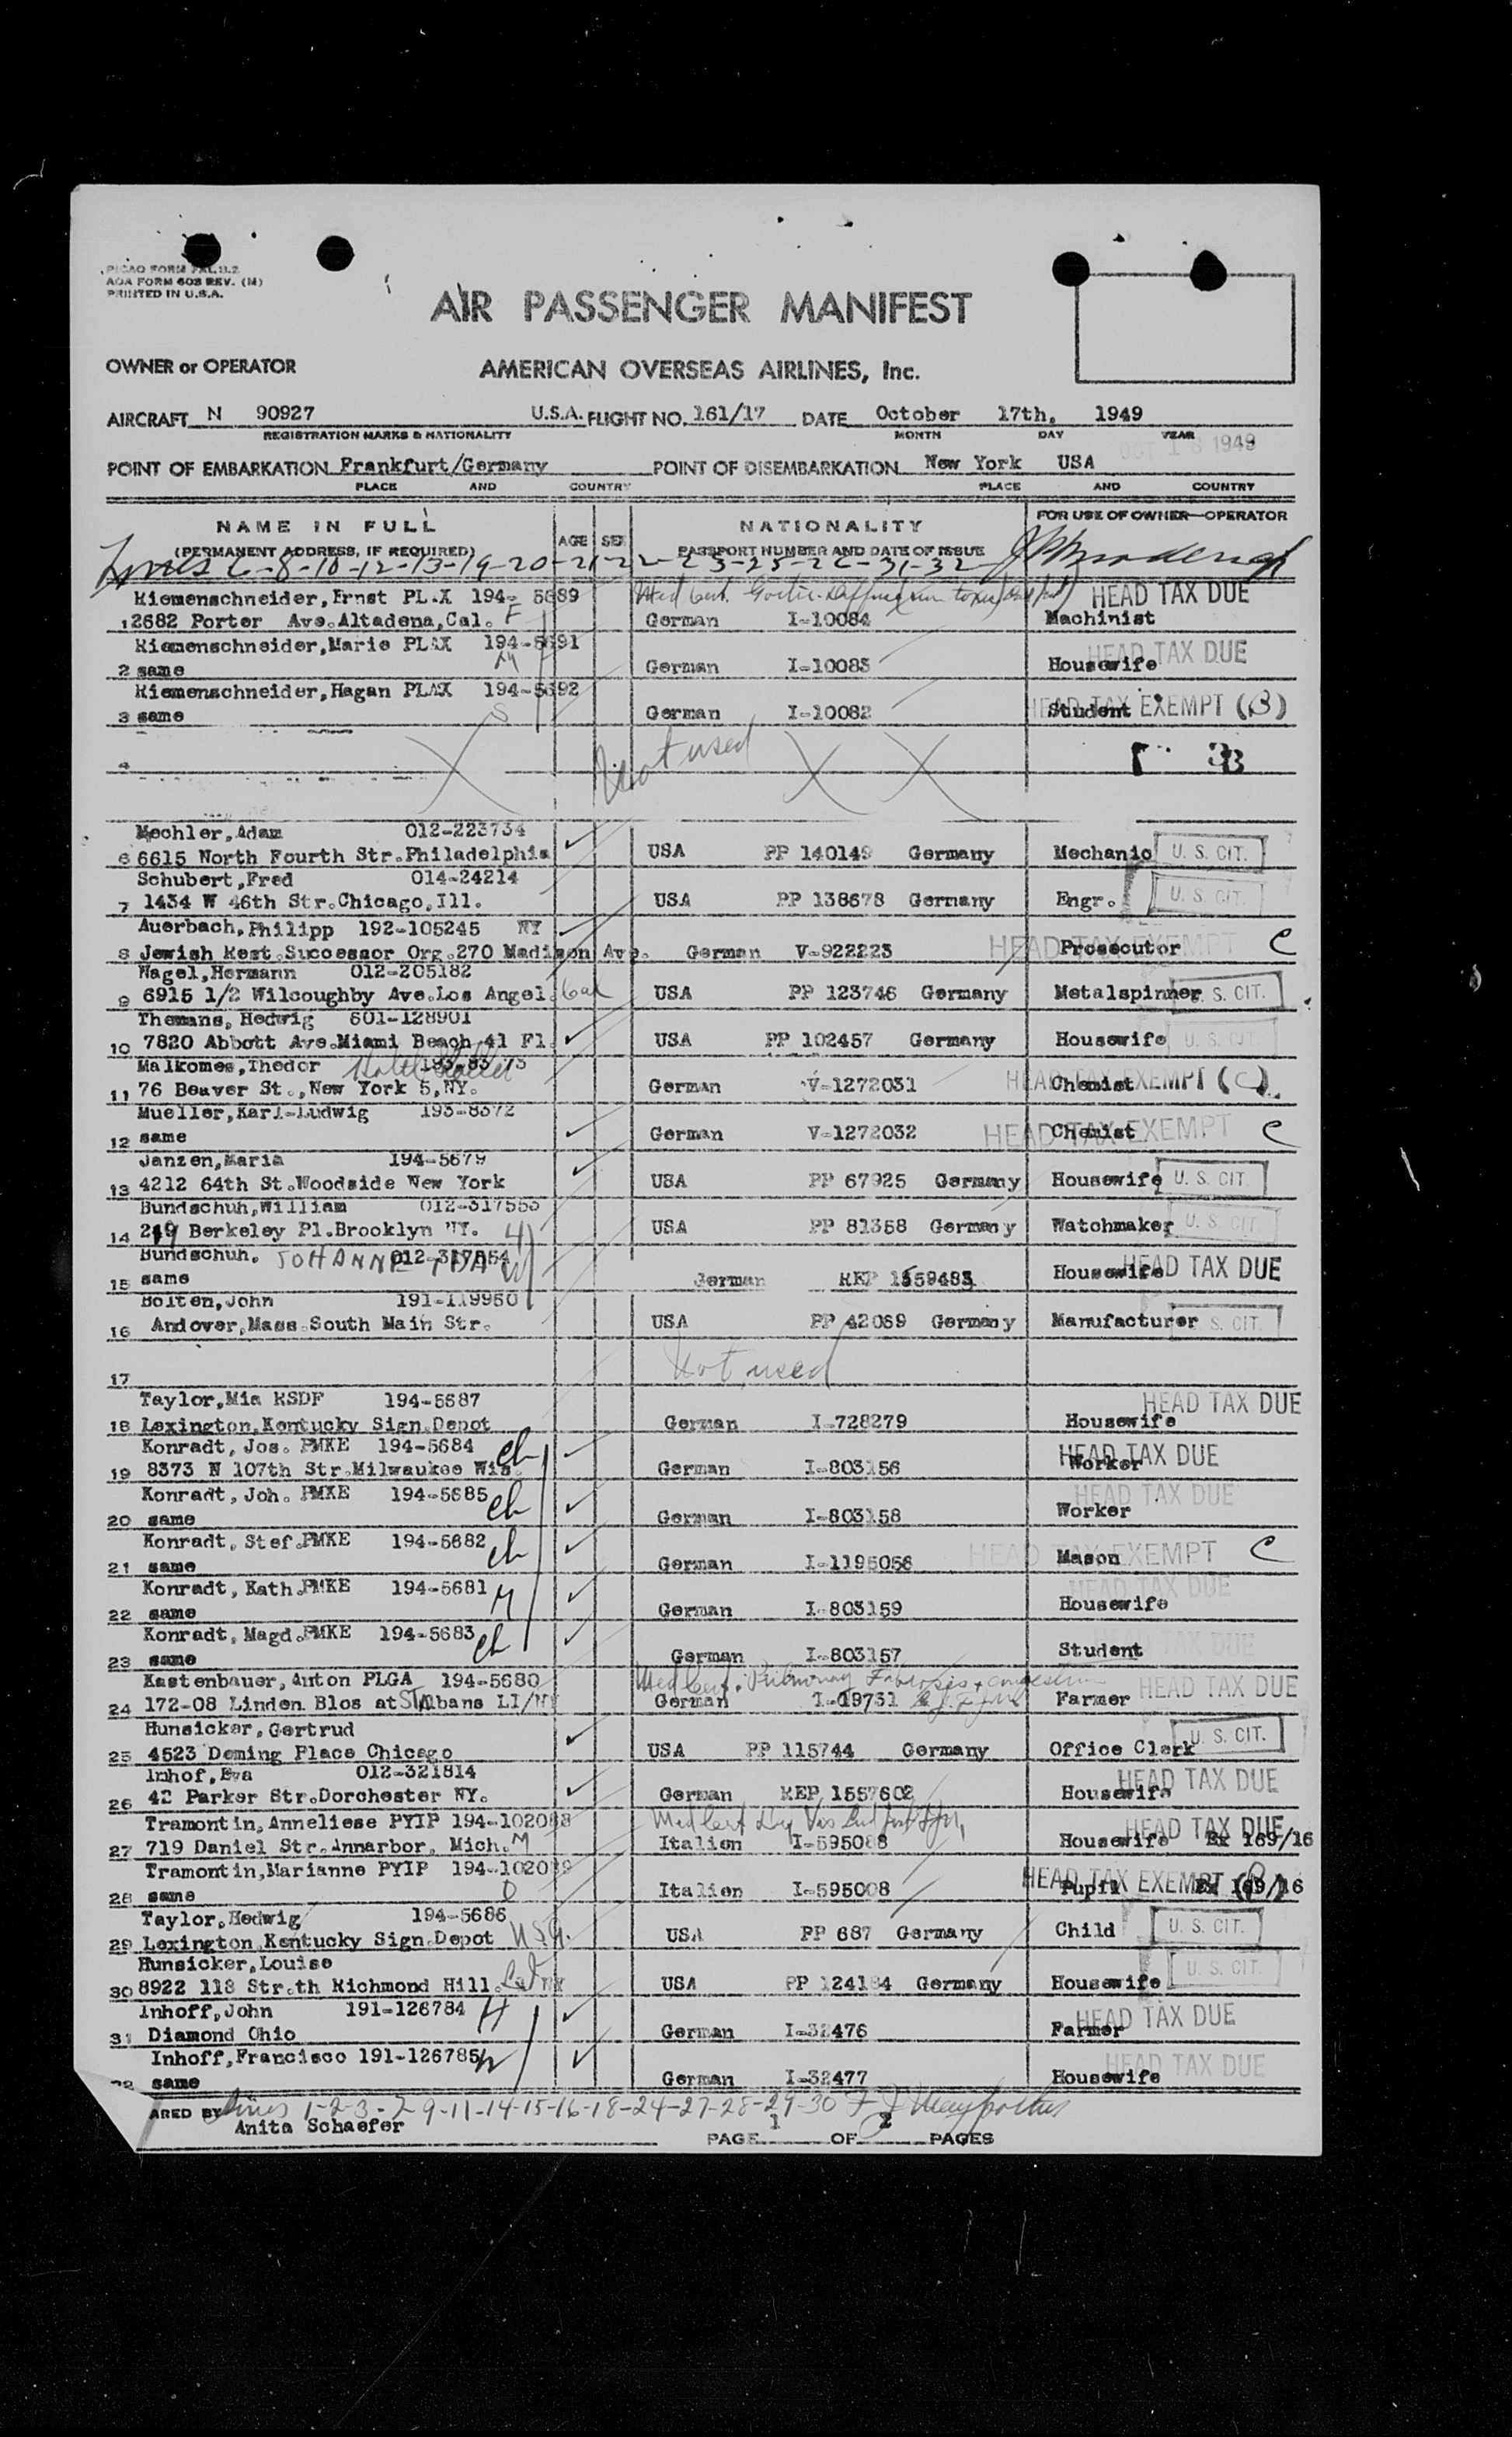 PICAO FORM PAL.II.2
AOA FORM 603 REV. (M)
PRINTED IN U.S.A.
AIR PASSENGER MANIFEST
OWNER or OPERATOR AMERICAN OVERSEAS AIRLINES, Inc.
AIRCRAFT N 90927 U.S.A. FLIGHT NO. 161/17 DATE October 17th, 1949
REGISTRATION MARKS & NATIONALITY MONTH DAY YEAR
OCT 18 1949
POINT OF EMBARKATION Frankfurt/Germany POINT OF DISEMBARKATION New York USA
PLACE AND COUNTRY PLACE AND COUNTRY
NAME IN FULL AGE SEX NATIONALITY FOR USE OF OWNER-OPERATOR
(PERMANENT ADDRESS, IF REQUIRED) PASSPORT NUMBER AND DATE OF ISSUE
Lines 6-8-10-12-13-19-20-21-22-23-25-26-31-32
Riemenschneider, Ernst 194-5689 Med Cert. HEAD TAX DUE
1 2682 Porter Ave. Altadena, Cal. F German I-10084 Machinist
Riemenschneider, Marie PLAX 194-5691 HEAD TAX DUE
2 same M German I-10083 Housewife
Riemenschneider, Hagan PLAX 194-5692 HEAD TAX EXEMPT (B)
3 same S German I-10082 Student
4 Not used
33
Mechler, Adam 012-223734
6 6615 North Fourth Str. Philadelphia USA PP 140149 Germany Mechanic U. S. CIT.
Schubert, Fred 014-24214
7 1434 W 46th Str. Chicago, Ill. USA PP 138678 Germany Engr. U. S. CIT.
Auerbach, Philipp 192-105245 NY
8 Jewish Rest. Successor Org. 270 Madison Ave. German V-922223 Prosecutor HEAD TAX EXEMPT C
Nagel, Hermann 012-205182
9 6915 1/2 Wilcoughby Ave. Los Angel. Cal USA PP 123746 Germany Metalspinner U. S. CIT.
Themans, Hedwig 601-128901
10 7820 Abbott Ave. Miami Beach 41 Fl. USA PP 102457 Germany Housewife U. S. CIT.
Malkomes, Thedor 193-83 73
11 76 Beaver St., New York 5, NY. German V-1272031 Chemist HEAD TAX EXEMPT (C)
Mueller, Karl-Ludwig 193-8372
12 same German V-1272032 Chemist HEAD TAX EXEMPT C
Janzen, Maria 194-5679
13 4212 64th St. Woodside New York USA PP 67925 Germany Housewife U. S. CIT.
Bundschuh, William 012-317553
14 219 Berkeley Pl. Brooklyn NY. H USA PP 81358 Germany Watchmaker U. S. CIT.
Bundschuh, JOHANNE 012-317554 W
15 same German REP 1559483 Housewife HEAD TAX DUE
Bolten, John 191-119950
16 Andover, Mass. South Main Str. USA PP 42089 Germany Manufacturer U. S. CIT.
17 Not used
Taylor, Mia KSDF 194-5687 HEAD TAX DUE
18 Lexington, Kentucky Sign. Depot German I-728279 Housewife
Konradt, Jos. PMKE 194-5684 ch
19 8373 N 107th Str. Milwaukee Wis. German I-803156 Worker HEAD TAX DUE
Konradt, Joh. PMKE 194-5685 ch HEAD TAX DUE
20 same German I-803158 Worker
Konradt, Stef. PMKE 194-5682 ch
21 same German I-1195056 Mason HEAD TAX EXEMPT C
Konradt, Kath. PMKE 194-5681 M HEAD TAX DUE
22 same German I-803159 Housewife
Konradt, Magd. PMKE 194-5683 ch
23 same German I-803157 Student HEAD TAX DUE
Kastenbauer, Anton PLGA 194-5680 Med Cert. Pulmonary Fibrosis +
24 172-08 Linden Blos at ST Albans LI/NY German I-19731 Farmer HEAD TAX DUE
Hunsicker, Gertrud
25 4523 Deming Place Chicago USA PP 115744 Germany Office Clerk U. S. CIT.
Imhof, Eva 012-321814
26 42 Parker Str. Dorchester NY. German REP 1557602 Housewife HEAD TAX DUE
Tramontin, Anneliese PYIP 194-102088 Med Cert
27 719 Daniel Str. Annarbor, Mich. M Italien I-595088 Housewife HEAD TAX DUE Ex 169/16
Tramontin, Marianne PYIP 194-102089
28 same D Italien I-595008 Pupil HEAD TAX EXEMPT (B) Ex 169/16
Taylor, Hedwig 194-5686
29 Lexington Kentucky Sign. Depot USA. USA PP 687 Germany Child U. S. CIT.
Hunsicker, Louise
30 8922 118 Str. th Richmond Hill. NY USA PP 124184 Germany Housewife U. S. CIT.
Inhoff, John 191-126784 H
31 Diamond Ohio German I-32476 Farmer HEAD TAX DUE
Inhoff, Francisco 191-126785 W
same German I-32477 Housewife HEAD TAX DUE
ARED BY Lines 1-2-3-7-9-11-14-15-16-18-24-27-28-29-30
Anita Schaefer
PAGE 1 OF 2 PAGES